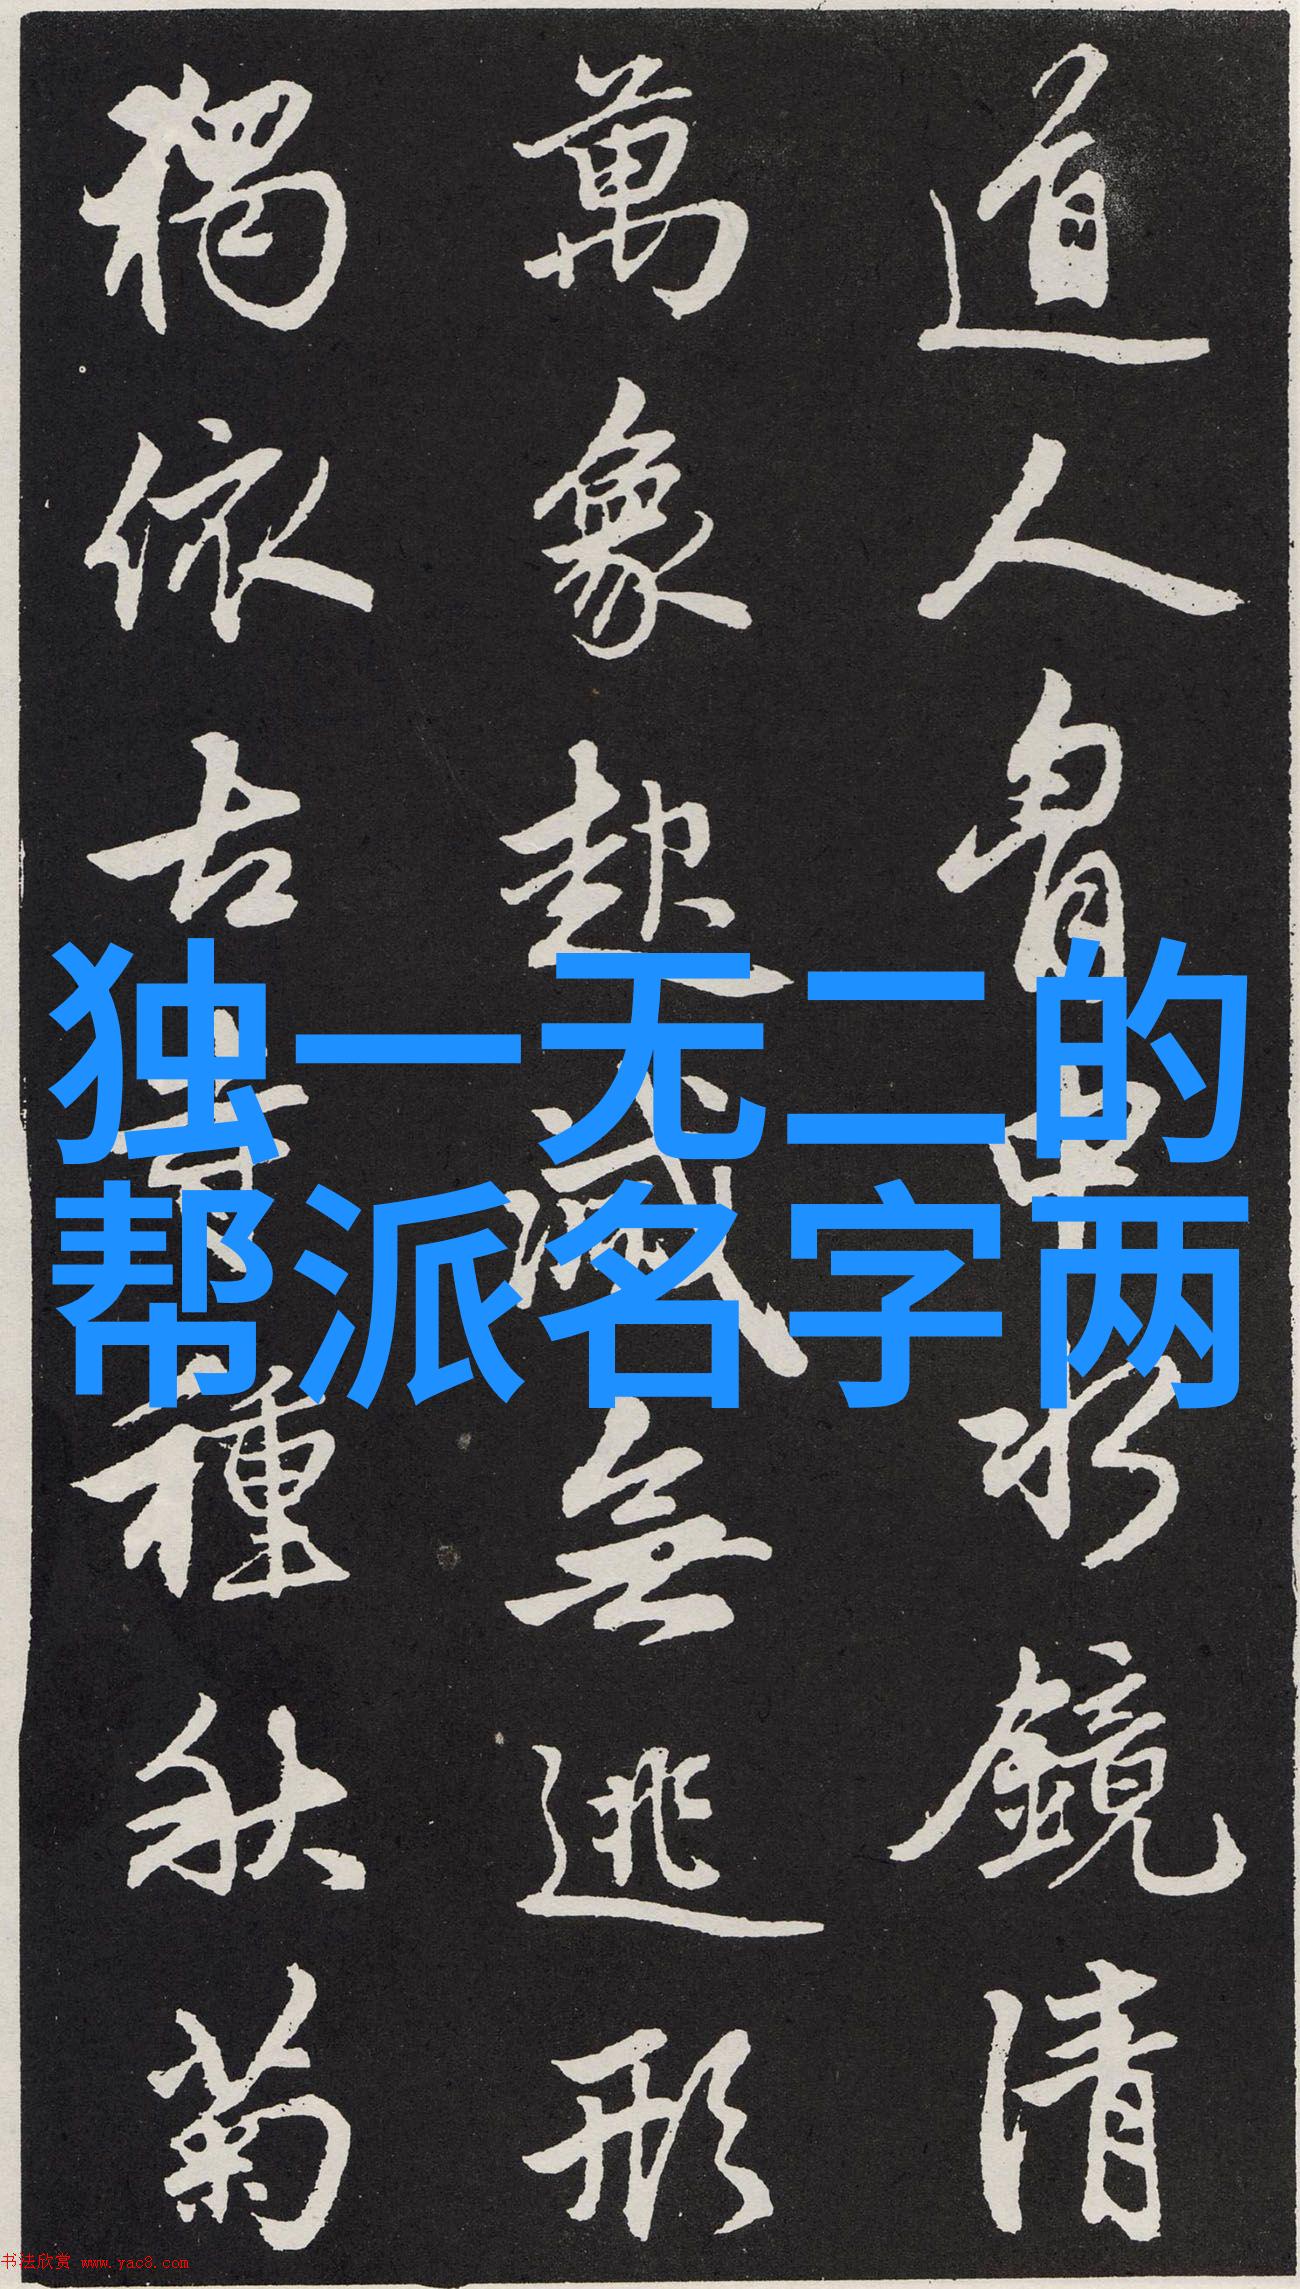 道人胷中水鏡清
萬象起滅無逃形
獨依古寺種秋菊
独一无二的
帮派名字两
书法欣赏 www.yac8.com